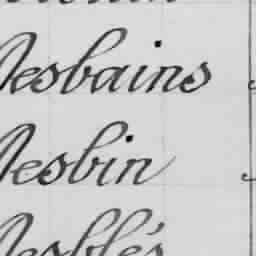 Desbains
Desbin
Desblés